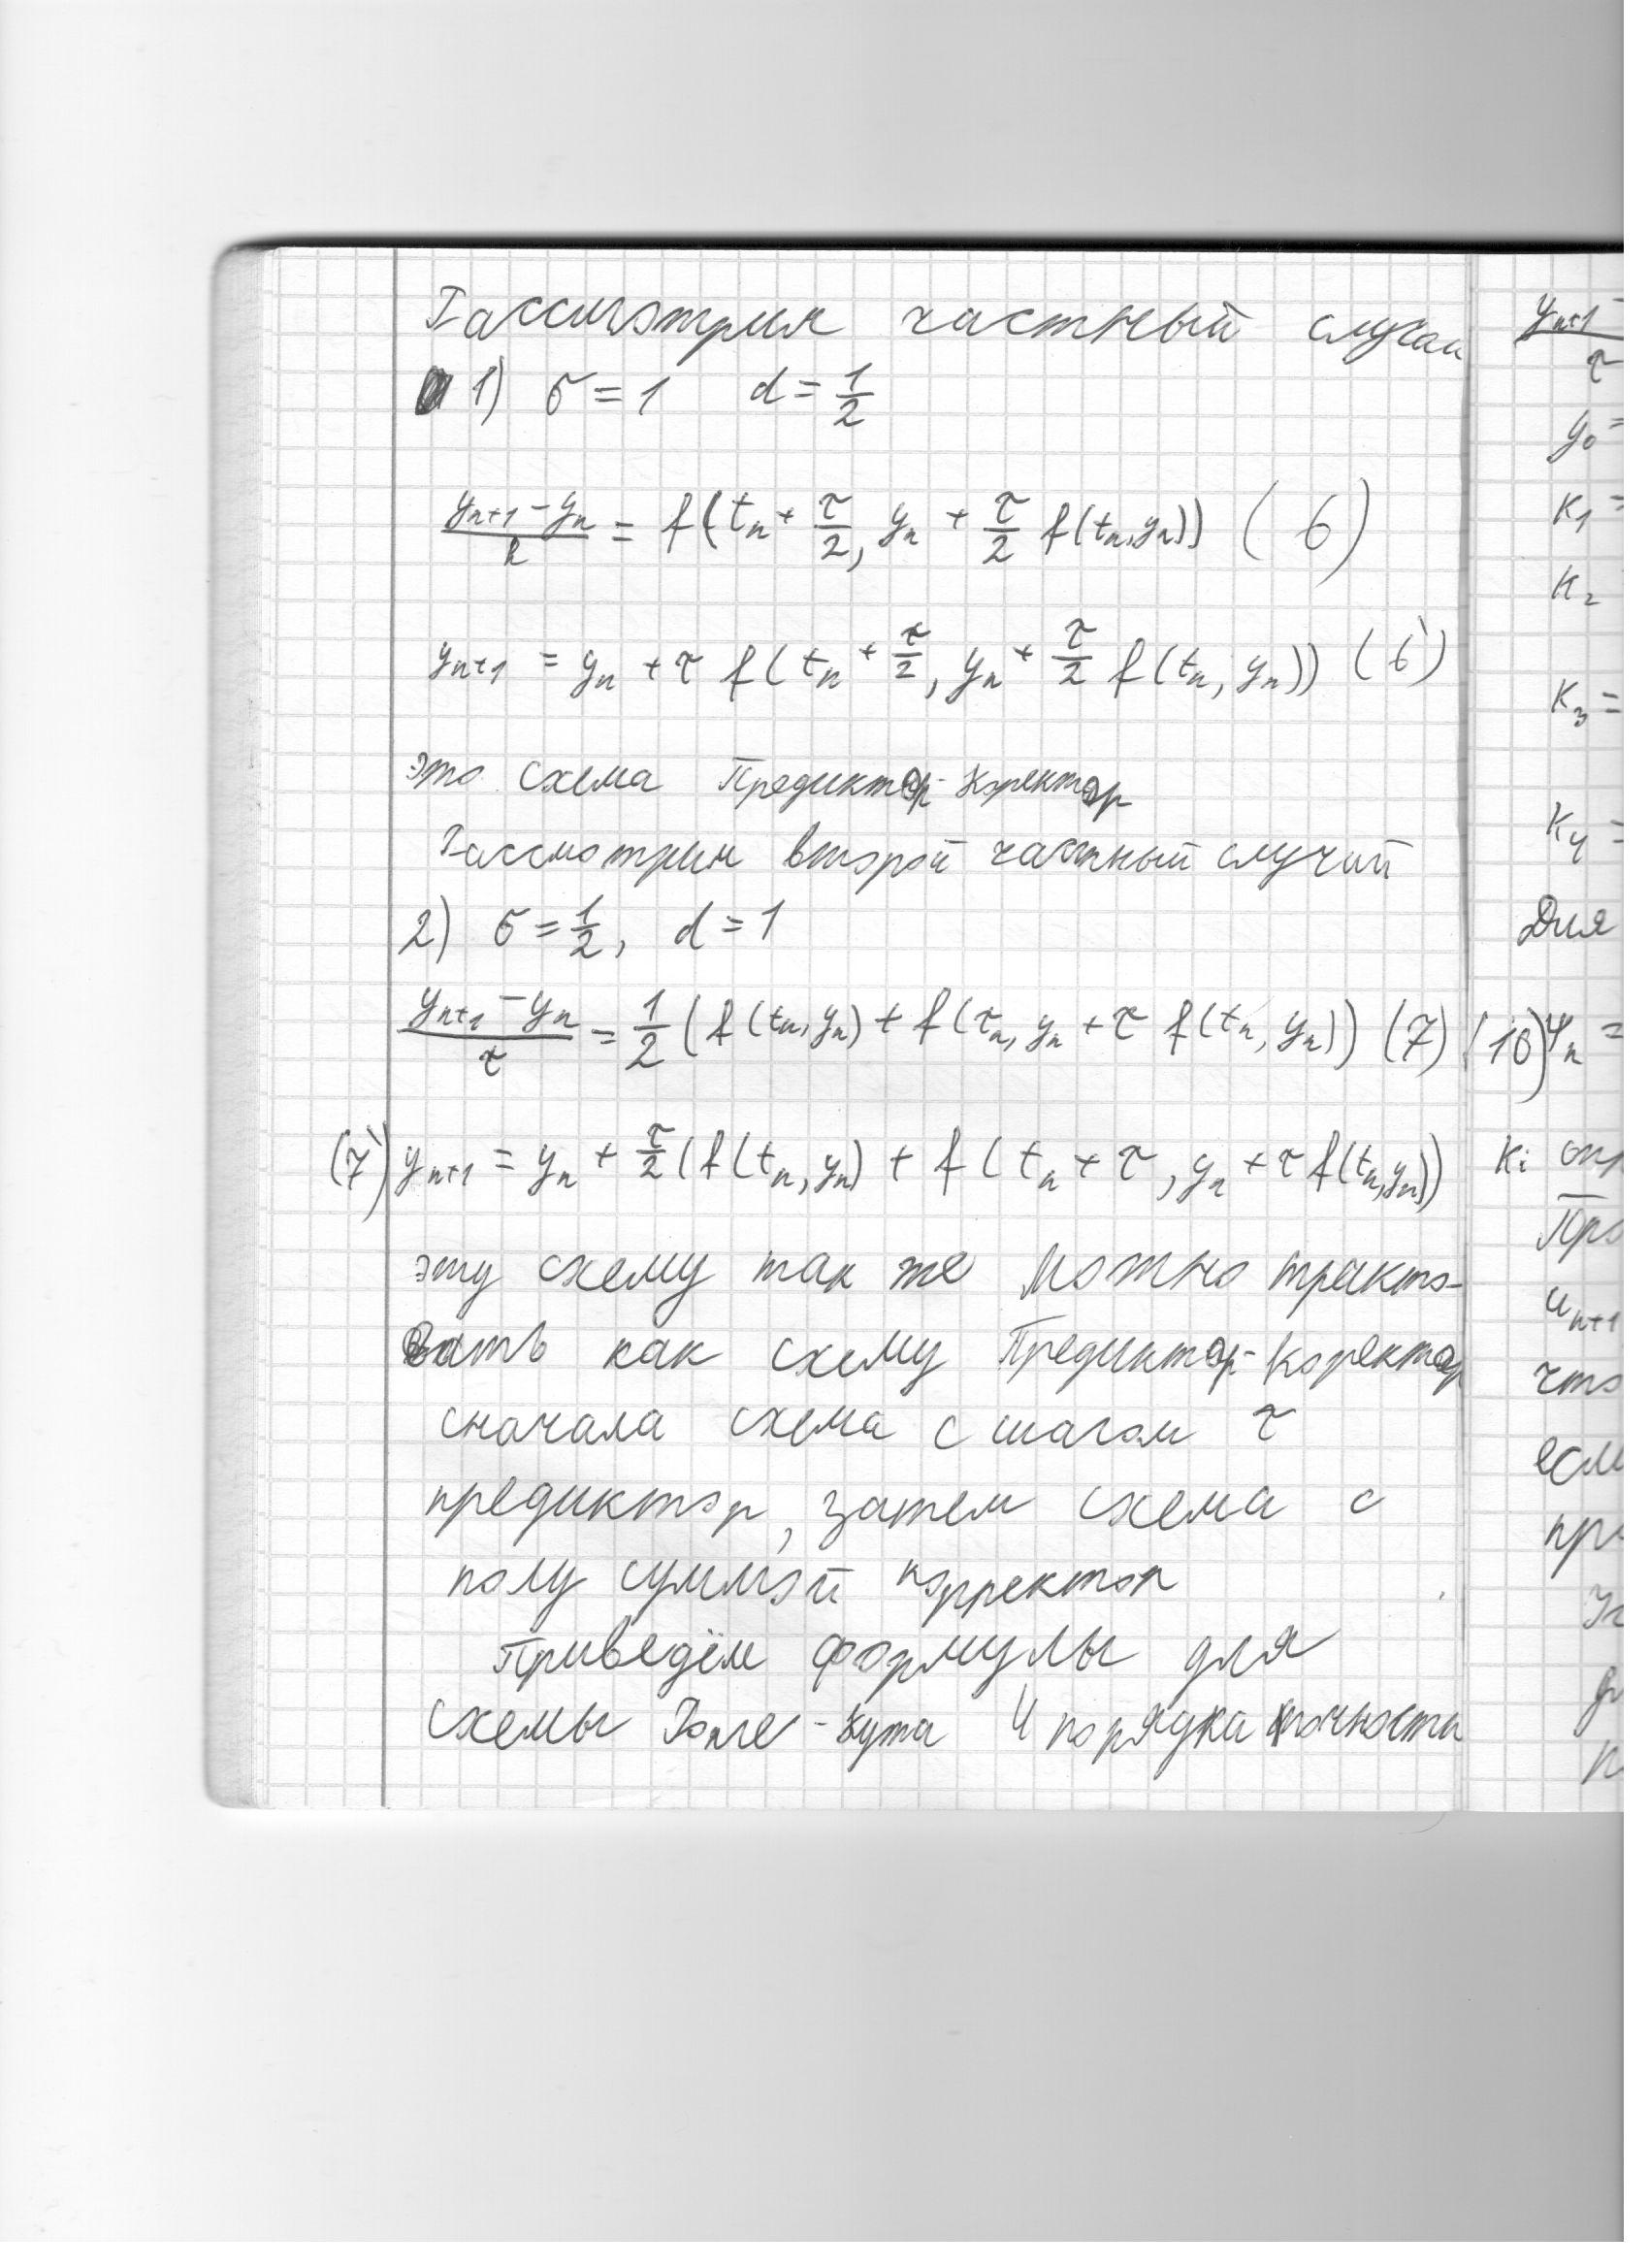 Рассмотрим частный случай
1) σ = 1 d = 1/2
(y_{n+1} - y_n)/h = f(t_n + τ/2, y_n + τ/2 f(t_n, y_n)) (6)
y_{n+1} = y_n + τ f(t_n + τ/2, y_n + τ/2 f(t_n, y_n)) (6')
это схема Предиктор-коректор
Рассмотрим второй частный случай
2) σ = 1/2, d = 1
(y_{n+1} - y_n)/τ = 1/2 (f(t_n, y_n) + f(τ_n, y_n + τ f(t_n, y_n)) (7)
(7') y_{n+1} = y_n + τ/2 (f(t_n, y_n) + f(t_n + τ, y_n + τ f(t_n, y_n))
эту схему так же можно тракто-
вать как схему Предиктор-коректор
сначала схема с шагом τ
предиктор, затем схема с
полу суммой корректор
Приведём формулы для
схемы Рунге-Кута 4 порядка точности
y_{n+1}
τ
y_0 =
K_1 =
K_2
K_3 =
K_4 =
Для
(10) ψ_n =
K_i
u_{n+1}
что